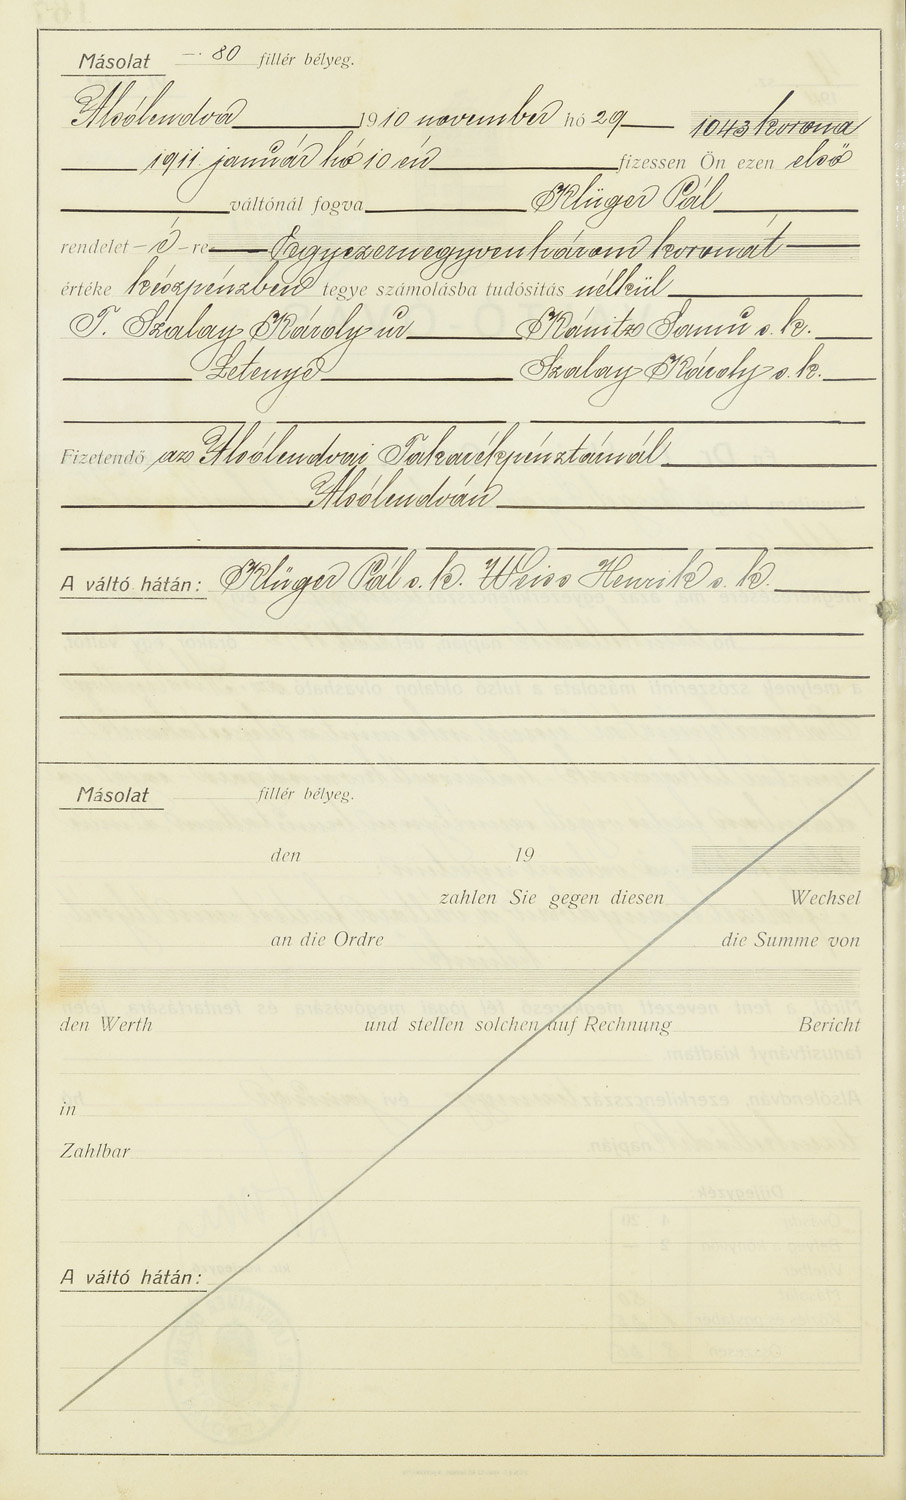 Másolat —. 80 fillér bélyeg.
Alsólendva 1910 november hó 29 1043 korona
1911. január hó 10 én fizessen Ön ezen első
váltónál fogva Klüger Pál
rendelet – é – re Egyezernegyvenhárom koronát
értéke készpénzben tegye számolásba tudósítás nélkül
T. Szalay Károly úr Kánitz Samu s. k.
Letenye Szalay Károly s. k.
Fizetendő az Alsólendvai Takarékpénztárnál
Alsólendván
A váltó hátán: Klüger Pál s. k. Weiss Henrik s. k.
Másolat fillér bélyeg.
den 19
zahlen Sie gegen diesen Wechsel
an die Ordre die Summe von
den Werth und stellen solchen auf Rechnung Bericht
in
Zahlbar
A váltó hátán: